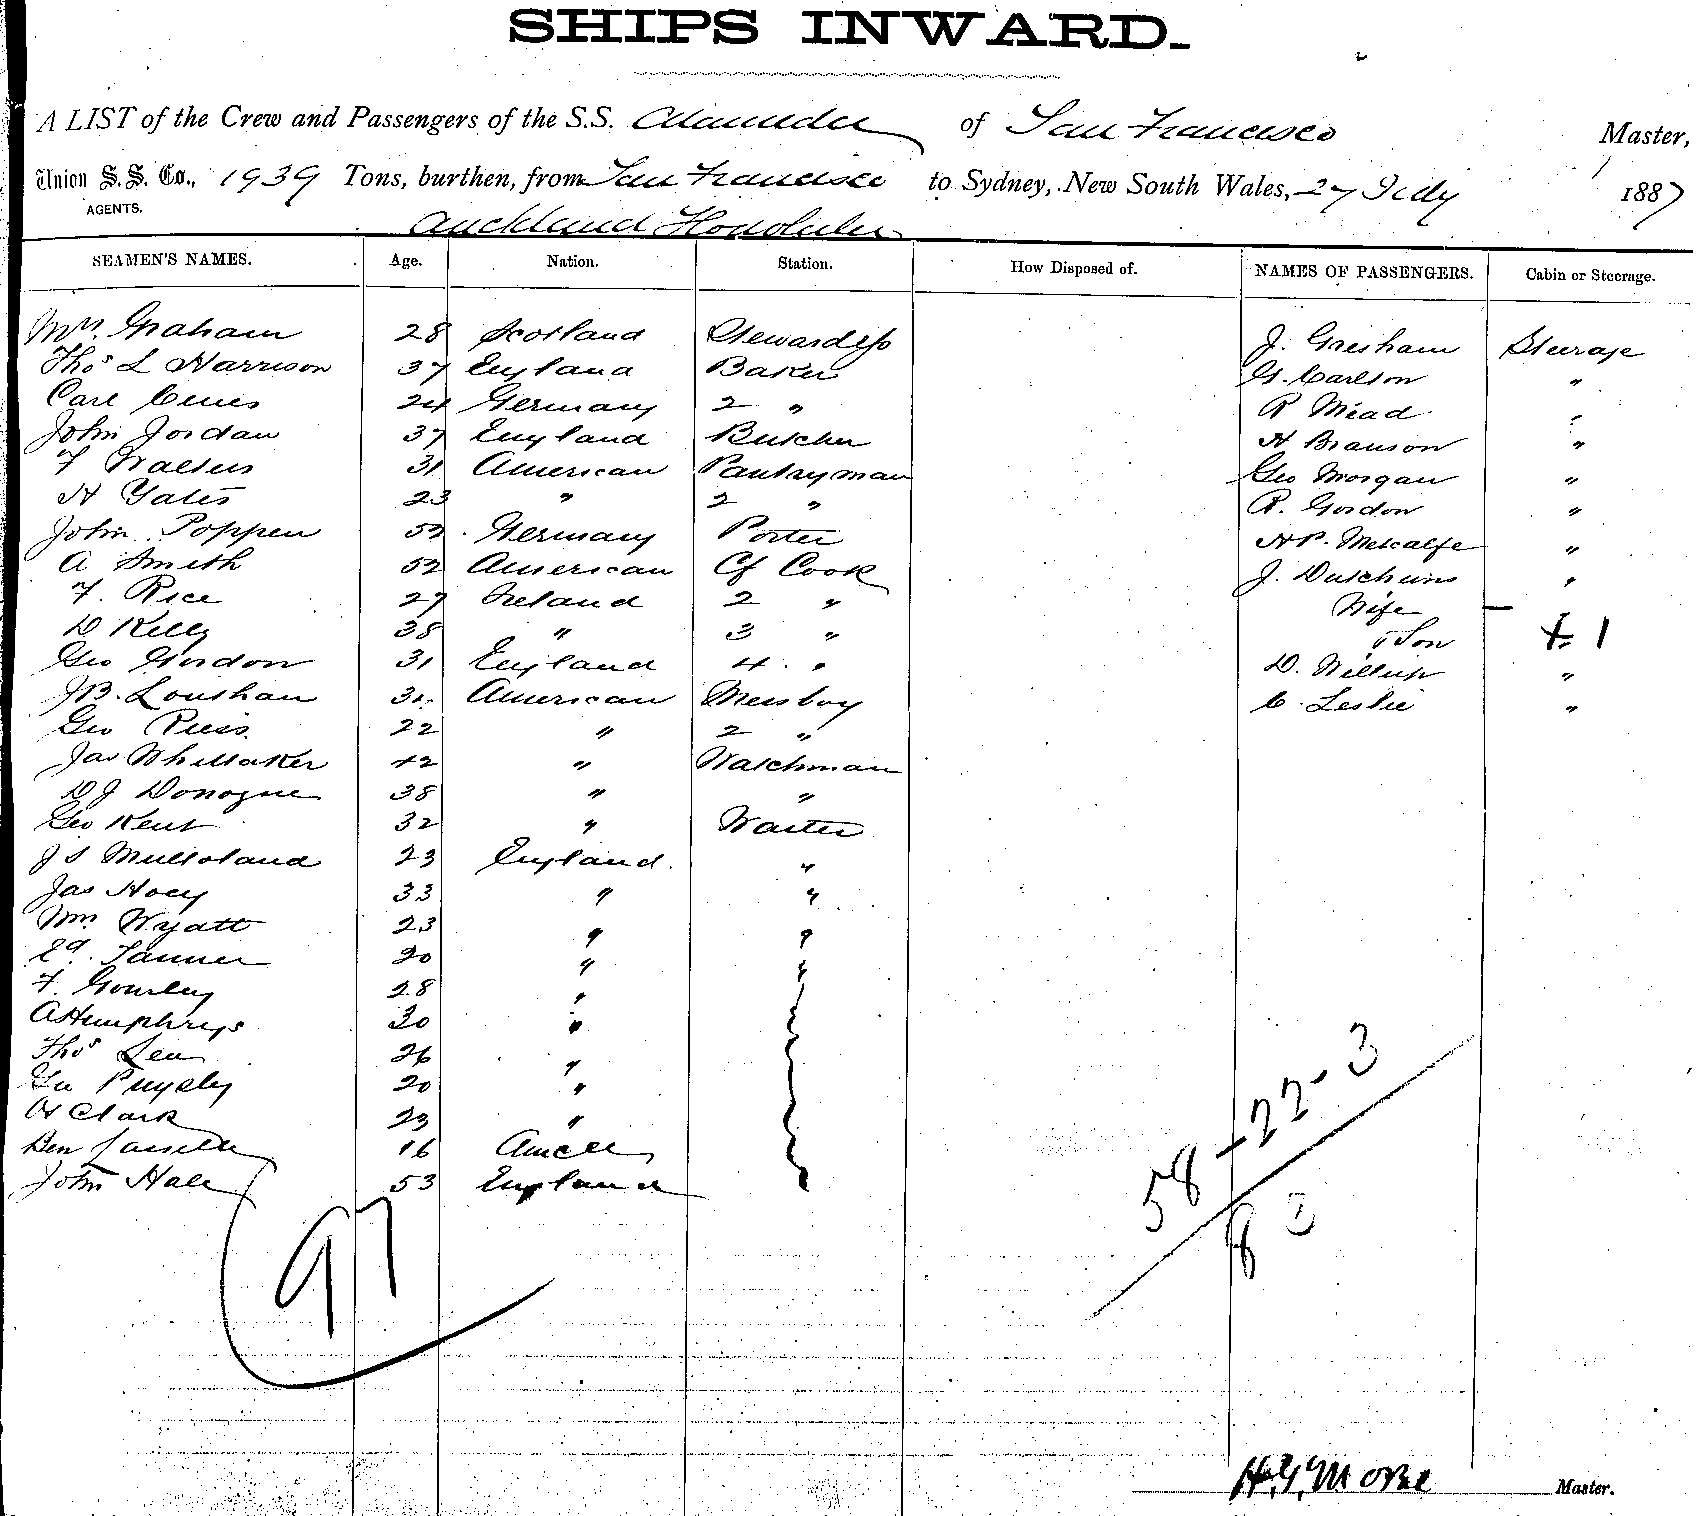 SHIPS INWARD.
A LIST of the Crew and Passengers of the S.S. Alameda of San Francisco Master,
Union S.S. Co., 1939 Tons, burthen, from San Francisco to Sydney, New South Wales, 27 July 1887
AGENTS.
Auckland Honolulu
SEAMEN'S NAMES. Age. Nation. Station. How Disposed of. NAMES OF PASSENGERS. Cabin or Steerage.
Mrs. Graham 28 Scotland Stewardess J. Gresham Steerage
Thos L Harrison 37 England Baker G. Carlson "
Carl 24 Germany 2 " R Mead "
John Jordan 37 England Butcher H Branson "
F Walters 31 American Pantryman Geo Morgan "
H Yates 23 " 2 " R. Gordon "
John Poppen Germany Porter H P. Metcalfe "
A Smith 52 American Cf Cook J. "
F. Rice 27 Ireland 2 " Wife
D Kelly 38 " 3 " & Son 1
Geo Gordon 31 England 4 " D. "
J B. American Messboy C. Leslie "
Geo 22 " 2 "
Jas Whittaker 42 " Watchman
D J Donogue 38 " "
Geo Kent 32 " Waiter
J S Mulloland 23 England. "
Jas Hoey 33 " "
Wm Wyatt 23 " "
Ed. Tanner 20 " "
F. Gourley 28 "
A Humphrys 30 "
Thos Lea 26 "
Geo 20 "
H Clark 23 "
Ben 16
John Hale 53 England
58 22-3
97
83
H. G. Morse Master.